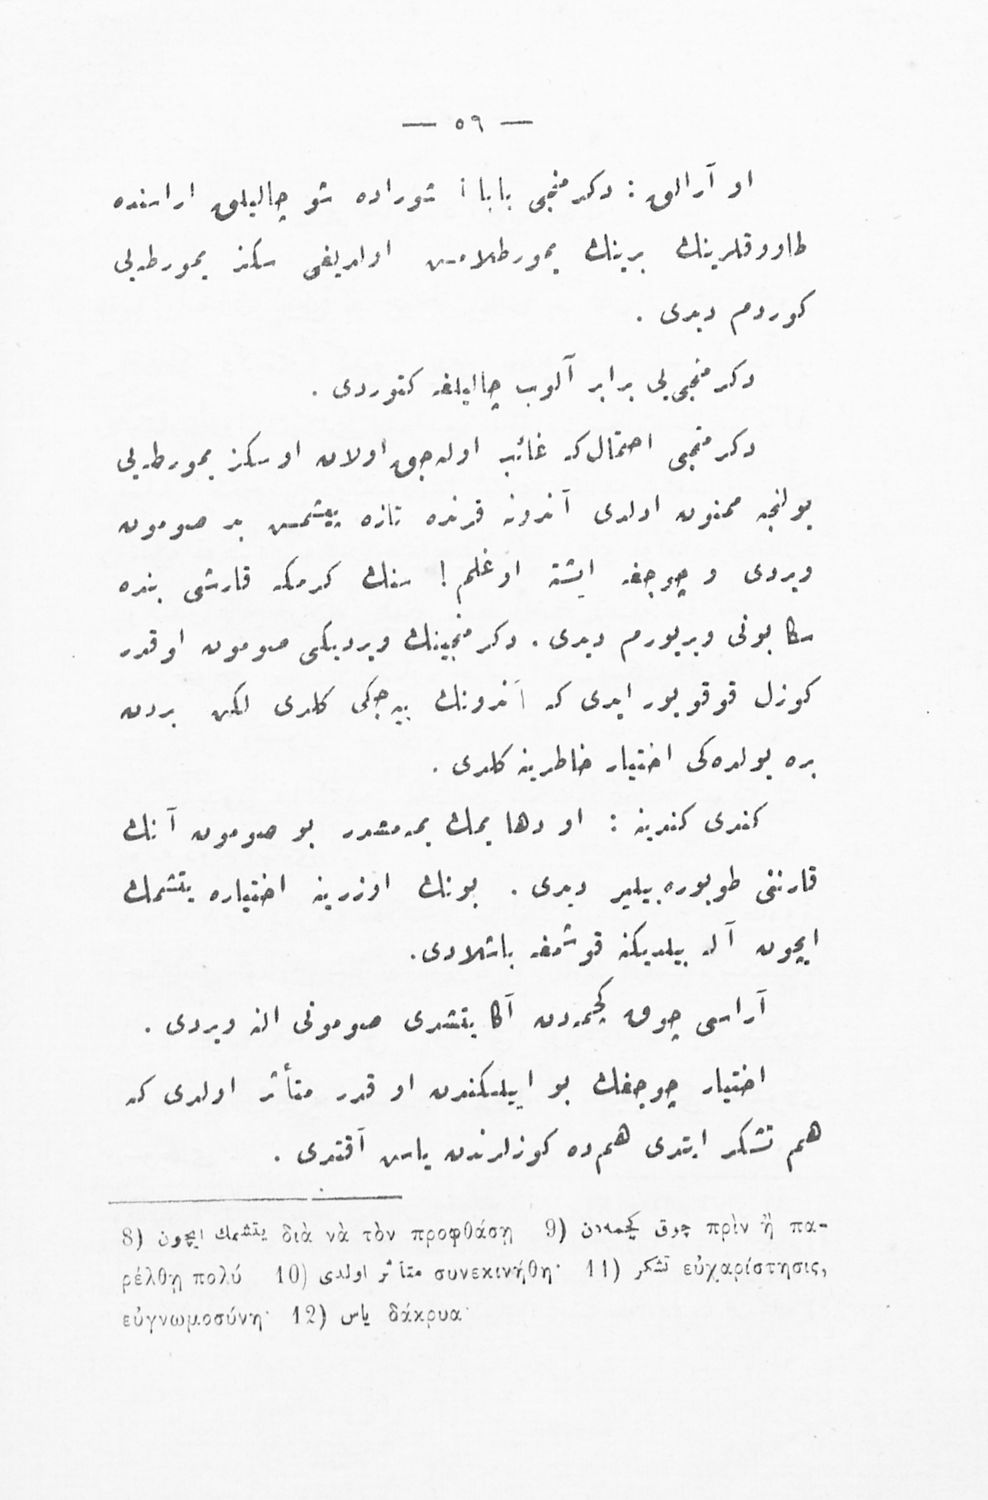 — ٥٩ —
او آرالق : دكرمنجى بابا ! شوراده شو چاليلق اراسنده
طاووقلرينك برينك يمورطلامش اولديغى سكز يمورطه‌يى
كوردم ديدى .
دكرمنجى‌يى برابر آلوب چاليلغه كتوردى .
دكرمنجى احتمال كه غائب اوله‌جق اولان او سكز يمورطه‌يى
بولنجه ممنون اولدى آندونه فرنده تازه پيشمش بر صومون
ويردى و چوجغه ايشته اوغلم ! سنك كرمكه قارشى بنده
سكا بونى ويريورم ديدى . دكرمنجينك ويرديكى صومون اوقدر
كوزل قوقويور ايدى كه آندونك ييه‌جكى كلدى لكن بردن
بره يولده‌كى اختيار خاطرينه كلدى .
كندى كندينه : او دها يمك يمه‌مشدر بو صومون آنك
قارننى طويوره‌بيلير ديدى . بونك اوزرينه اختياره يتشمك
ايچون آله بيلديكنه قوشمغه باشلادى .
آراسى چوق كچمه‌دن آكا يتشدى صومونى النه ويردى .
اختيار چوجغك بو اييلكندن او قدر متأثر اولدى كه
هم تشكر ايتدى هم‌ده كوزلرندن ياش آقتدى .
8) يتشمك ايچون διὰ νὰ τὸν προφθάσῃ 9) چوق كچمه‌دن πρὶν ἢ πα-
ρέλθῃ πολύ 10) متأثر اولدى συνεκινήθη· 11) تشكر εὐχαρίστησις,
εὐγνωμοσύνη· 12) ياس δάκρυα·